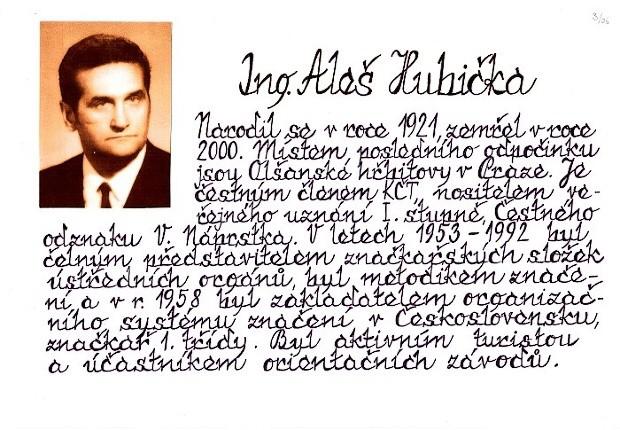 3/06
Ing. Aleš Hubička
Narodil se v roce 1921, zemřel v roce
2000. Místem posledního odpočinku
jsou Olšanské hřbitovy v Praze. Je
čestným členem KČT, nositelem ve-
řejného uznání I. stupně, Čestného
odznaku V. Náprstka. V letech 1953-1992 byl
čelným představitelem značkařských složek
ústředních orgánů, byl metodikem znače-
ní a v r. 1958 byl zakladatelem organizač-
ního systému značení v Československu,
značkař 1. třídy. Byl aktivním turistou
a účastníkem orientačních závodů.